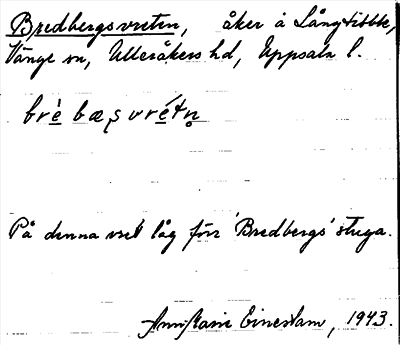 Bredbergsvreten, åker å Långtibble,
Vänge sn, Ulleråkers hd, Uppsala l.
brè bæʂ vrétn̥
På denna vret låg förr 'Bredbergs' stuga.
Ann Marie Einerstam, 1943.